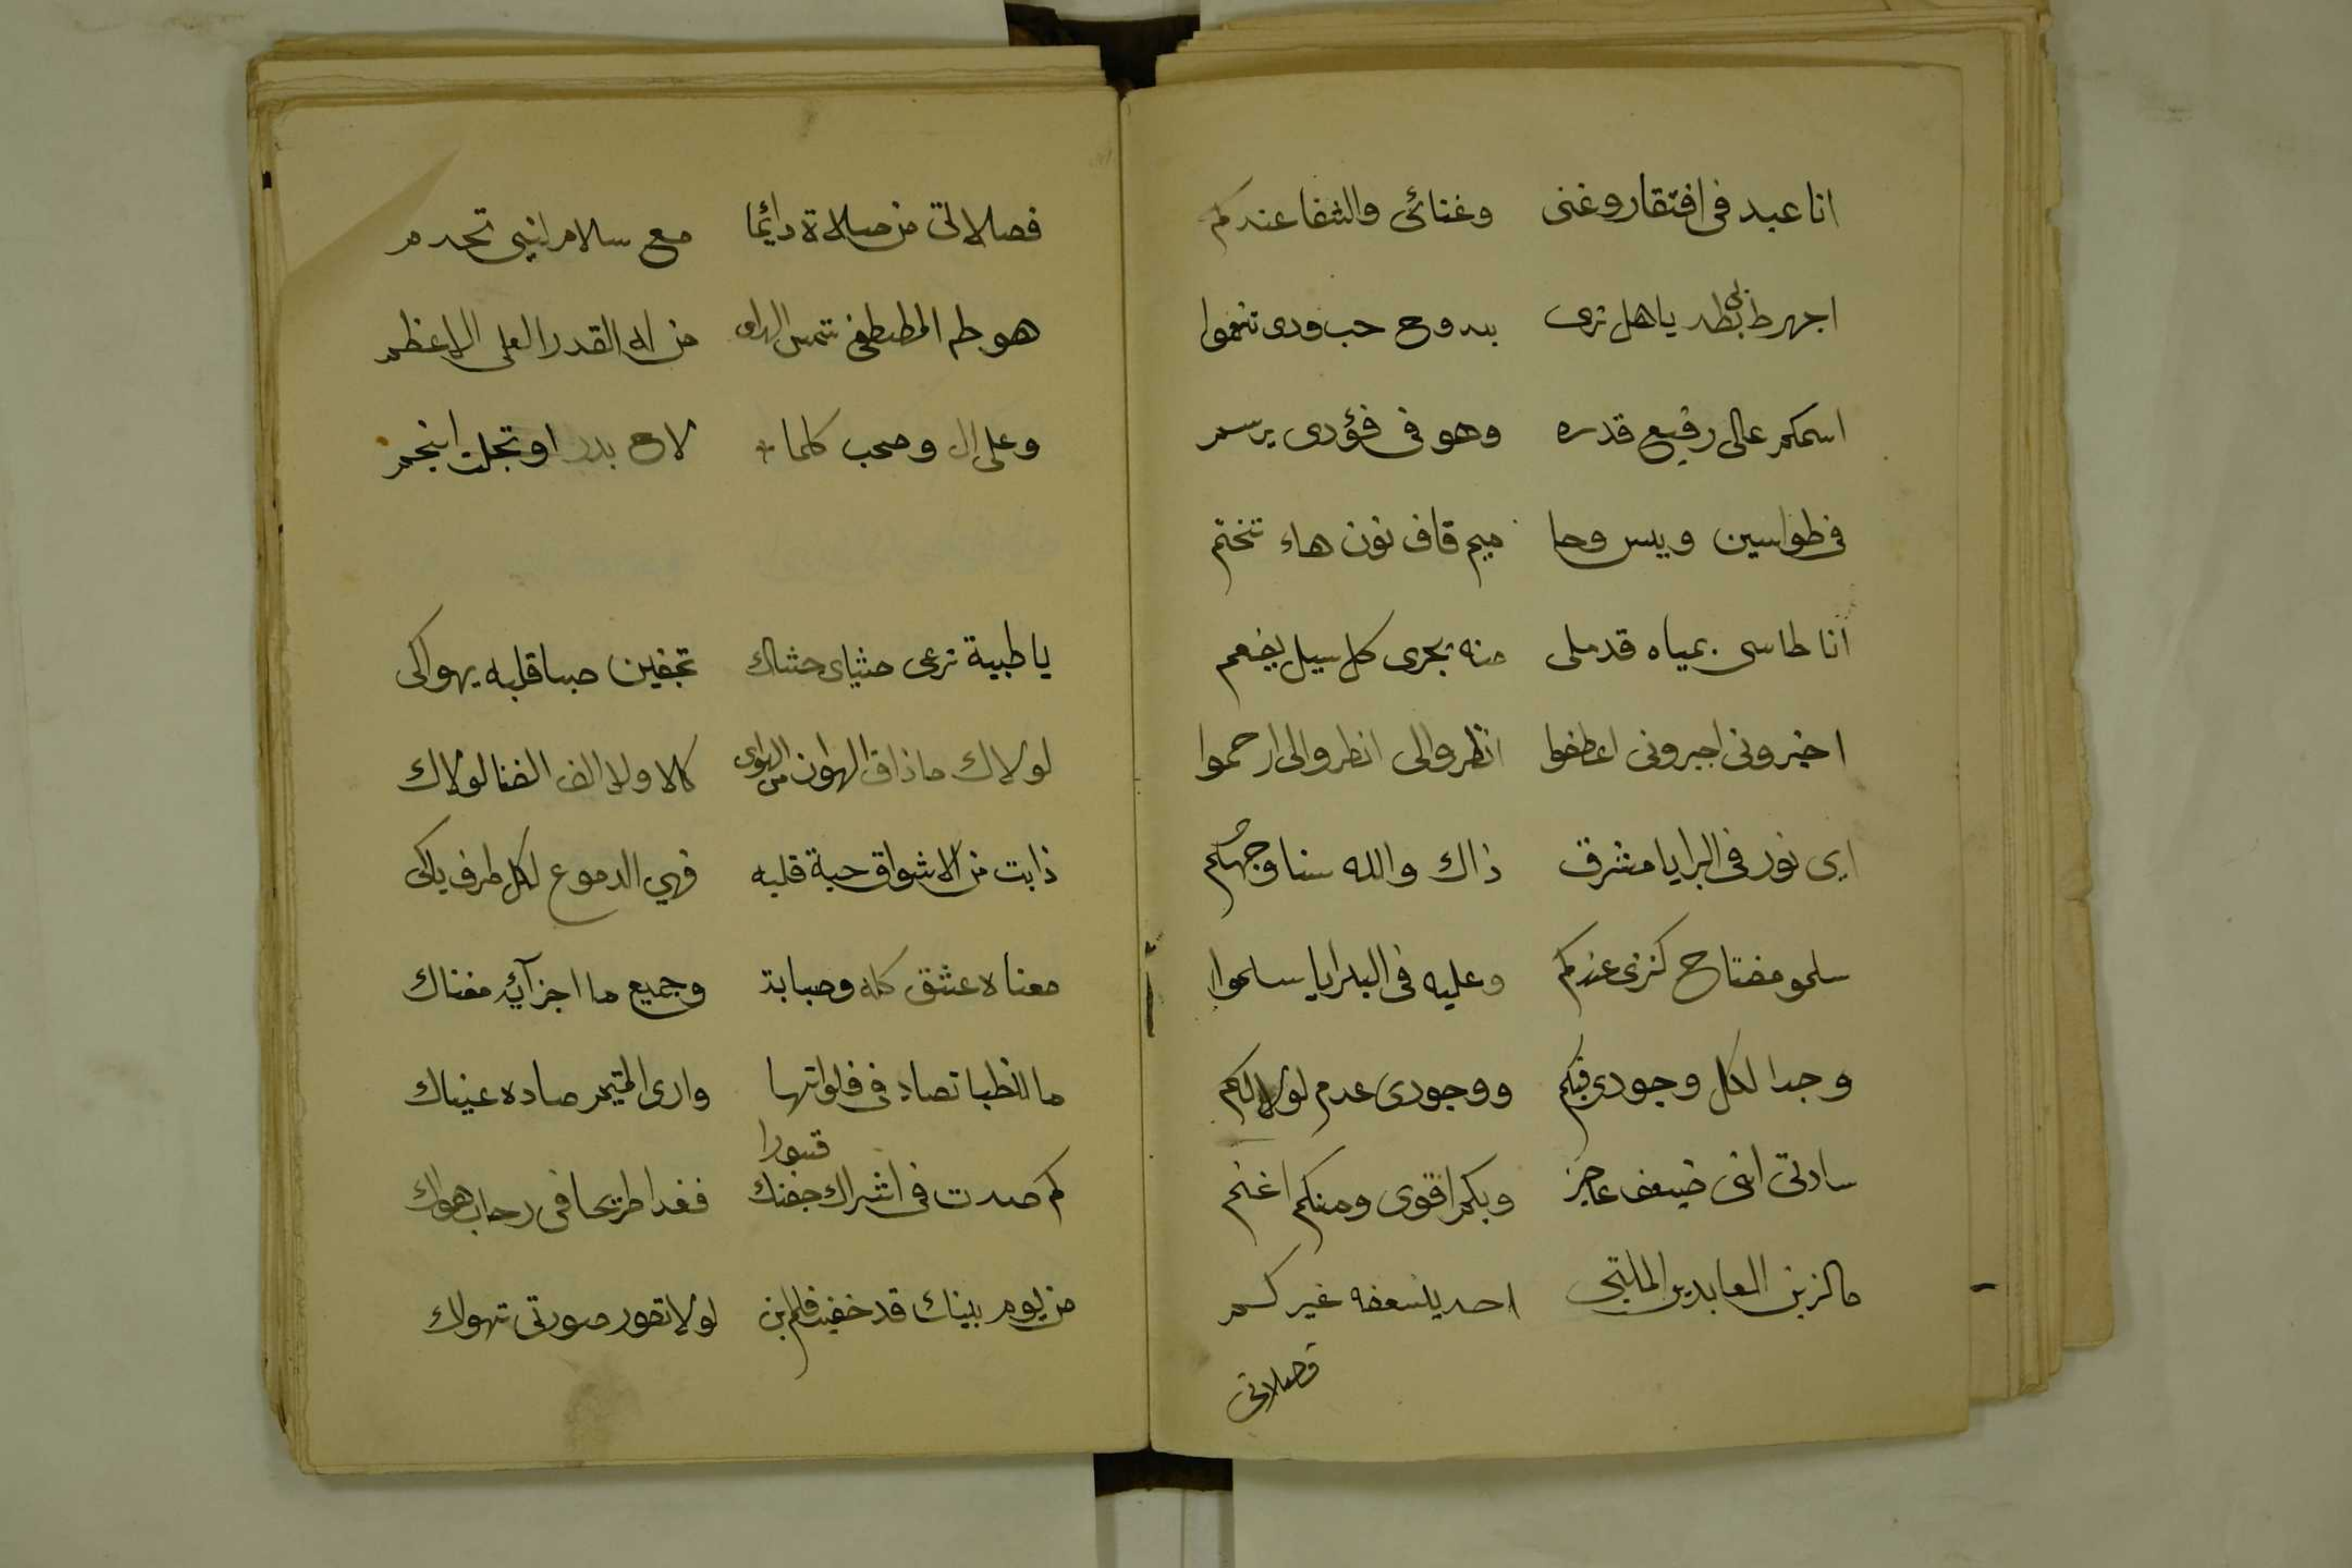 انا عبد فى افتقار وغنى وغنائى والشفا عندكم
اجهر طبطد ياهل ترى بدوح حب ودى تنعموا
اسمكم عالى رفيع قدره وهو فى فؤدى يرسم
فى طواسين ويس وحا ميم قاف نون هاء تختم
انا طاسى بمياه قد ملى منه يجرى كل سيل يفعم
اخبرونى اجبرونى اعطفوا انظروا الى انظروا الى ارحموا
اى نور فى البرايا مشرق ذاك والله سنا وجهكم
سلمو مفتاح كنزى عندكم وعليه فى البرايا سلموا
وجدا لكل وجودى فيكم ووجودى عدم لولاكم
سادتى انى ضيعف عاجز وبكم اقوى ومنكم اغنم
مالزين العابدين الملتجى احد يسعفه غيركم
فصلاتى
فصلالاتى من صلاة دايئما مع سلام لنبى تحدم
هو طه المطصطفى شمس الهدى من له القدر العلى الاعظم
وعلى ال وصحب كلما لاح بدر او تجلت انجم
ياطبية ترعى حثياى حشاك تجفين صبا قلبه يهواكى
لولاك ما ذاق الهوان من الهوى كلا ولا الف الضنا لولاك
ذابت من الاشواق حبة قلبه فهي الدموع لكل طرف باكى
معناه عشق كله وصبابة وجميع ما اجزآئه مغناك
ما للظبا تصاد فى فلواتها وارى المتيم صاده عيناك
قسورا
كم صدت فى اشراك جفنك فغدا طريحا فى رحاب هواك
من يوم بينك قد خفيت فلم ابن لولا تصور صورتى تهواك